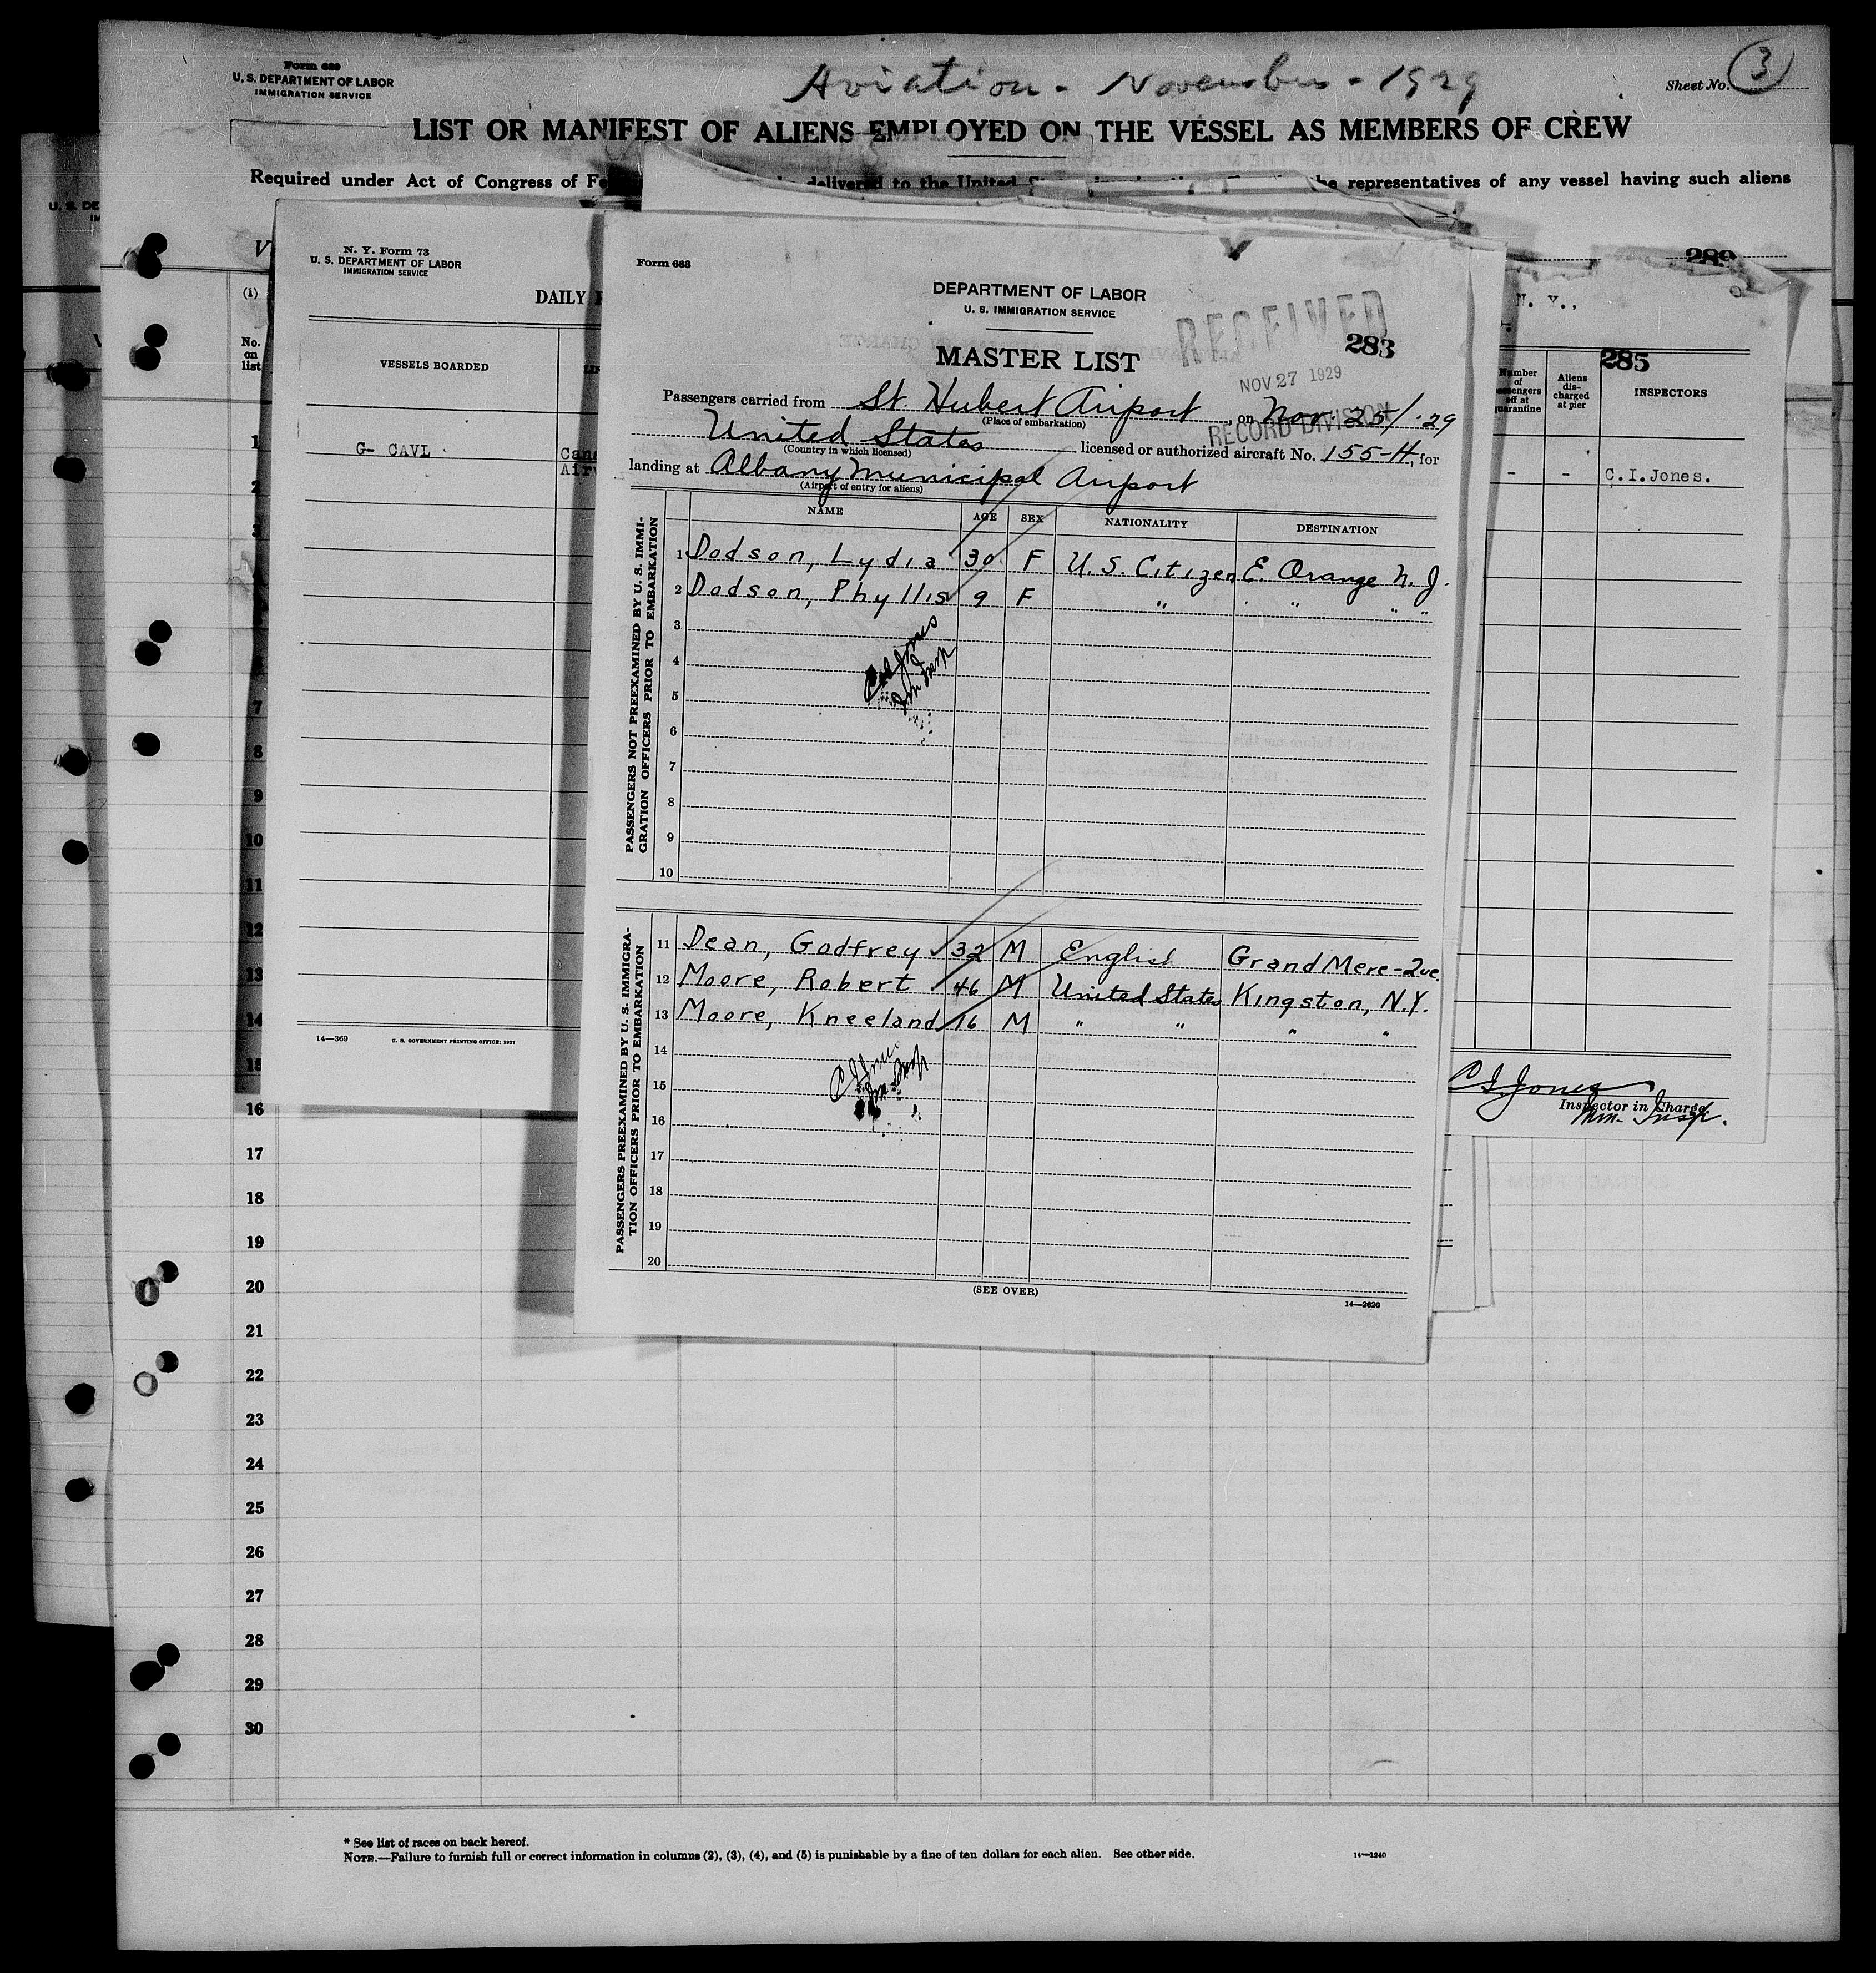 Form 680
U. S. DEPARTMENT OF LABOR
IMMIGRATION SERVICE
Aviation - November - 1929
Sheet No. 3
LIST OR MANIFEST OF ALIENS EMPLOYED ON THE VESSEL AS MEMBERS OF CREW
Required under Act of Congress of delivered to the United representatives of any vessel having such aliens
289
(1)
No. on list
N. Y. Form 73
U. S. DEPARTMENT OF LABOR
IMMIGRATION SERVICE
DAILY
VESSELS BOARDED
G- CAVL
14—369
U. S. GOVERNMENT PRINTING OFFICE: 1927
Form 663
DEPARTMENT OF LABOR
U. S. IMMIGRATION SERVICE
RECEIVED
NOV 27 1929
RECORD DIVISION
283
MASTER LIST
Passengers carried from St. Hubert Airport, on Nov. 25/.29
(Place of embarkation)
United States licensed or authorized aircraft No. 155-H, for
(Country in which licensed)
landing at Albany Municipal Airport
(Airport of entry for aliens)
NAME AGE SEX NATIONALITY DESTINATION
PASSENGERS NOT PREEXAMINED BY U. S. IMMI-
GRATION OFFICERS PRIOR TO EMBARKATION
1 Dodson, Lydia 30 F U.S. Citizen E. Orange N. J.
2 Dodson, Phyllis 9 F " " " "
3
4
5
6
7
8
9
10
C I Jones
Imm Insp
PASSENGERS PREEXAMINED BY U. S. IMMIGRA-
TION OFFICERS PRIOR TO EMBARKATION
11 Dean, Godfrey 32 M English Grand Mere-Que.
12 Moore, Robert 46 M United States Kingston, N.Y.
13 Moore, Kneeland 16 M " " " "
14
15
16
17
18
19
20
C I Jones
Imm Insp
(SEE OVER)
14—2620
N. Y.,
285
Number of passengers off at quarantine
Aliens dis-charged at pier
INSPECTORS
- - C.I.Jones.
C I Jones
Inspector in Charge.
Imm- Insp.
1
2
3
7
8
9
10
11
12
13
14
15
16
17
18
19
20
21
22
23
24
25
26
27
28
29
30
* See list of races on back hereof.
NOTE.—Failure to furnish full or correct information in columns (2), (3), (4), and (5) is punishable by a fine of ten dollars for each alien. See other side.
14—1240